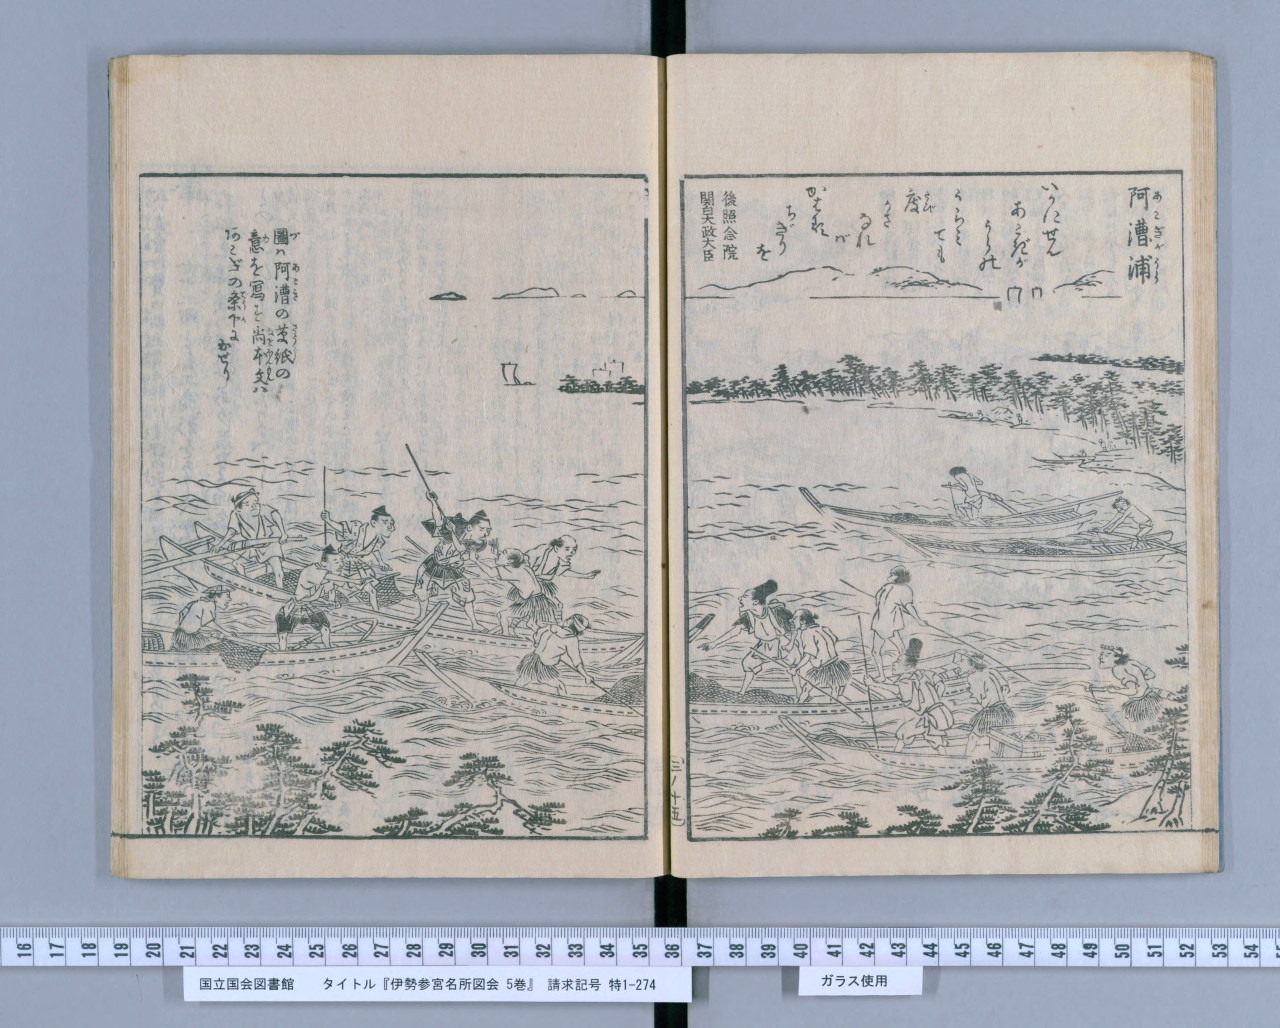 阿漕浦
あこぎがうら
いかにせん
あこぎが
うらの
うらみ
ても
度
かさ
なれ
ば
ちぎりを
後照念院
関白太政大臣
圖ハ阿漕の草紙の
意を寫す尚本文ハ
あこぎの条下に
出せり
三ノ十五
16 17 18 19 20 21 22 23 24 25 26 27 28 29 30 31 32 33 34 35 36 37 38 39 40 41 42 43 44 45 46 47 48 49 50 51 52 53 54
国立国会図書館 タイトル『伊勢参宮名所図会 5巻』 請求記号 特1-274
ガラス使用